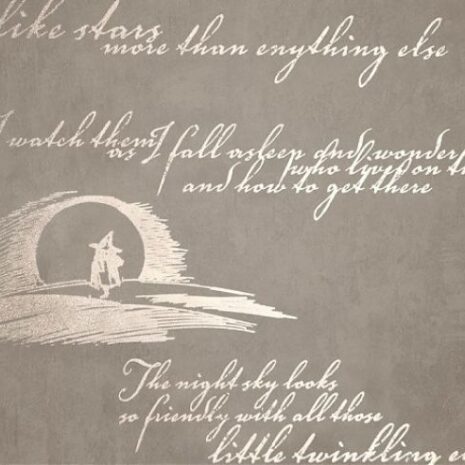 like stars
more than enything else
I watch them
as I fall asleep and wonder
who lives on
and how to get there
The night sky looks
so friendly with all those
little twinkling